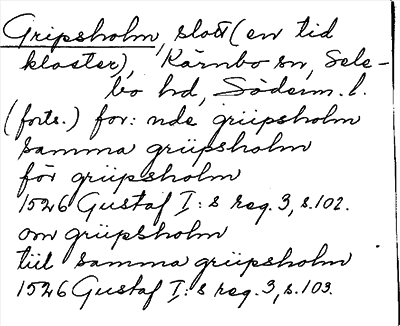 Gripsholm, slott (en tid
kloster), Kärnbo sn, Sele-
bo hd, Söderm. l.
(forts.) for: nde griipsholm
samma griipsholm
för griipsholm
1526 Gustaf I:s reg. 3, s. 102.
om griipsholm
tiil samma griipsholm
1526 Gustaf I:s reg. 3, s. 103.